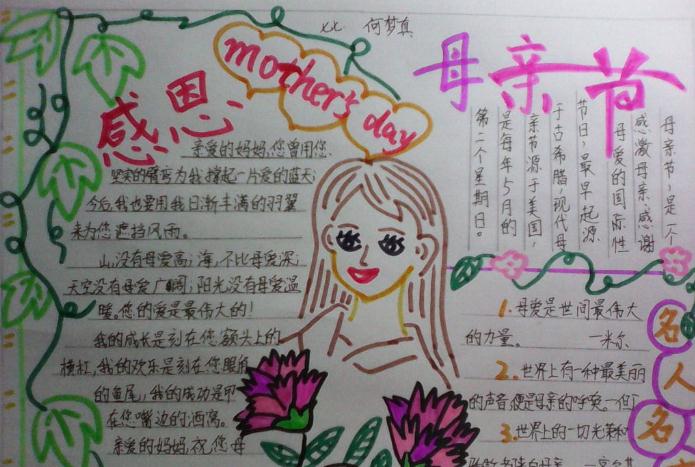 何梦真
mother's day
母亲节
感恩
亲爱的妈妈,您曾用您
坚实的臂弯为我撑起一片爱的蓝天;
今后,我也要用我日渐丰满的羽翼
来为您遮挡风雨。
山,没有母爱高;海,不比母爱深;
天空没有母爱广阔;阳光没有母爱温
暖。您的爱是最伟大的!
我的成长是刻在您额头上的
横杠,我的欢乐是刻在您眼角
的鱼尾,我的成功是
在您嘴边的酒窝。
亲爱的妈妈,祝您母
母亲节,是一个
感激母亲,感谢
母爱的国际性
节日,最早起源
于古希腊,现代母
亲节源于美国,
是每年5月的
第二个星期日。
1.母爱是世间最伟大
的力量。 —米尔
2.世界上有一种最美丽
的声音,便是母亲的呼唤。—但丁
3.世界上的一切光荣和
名
人
名